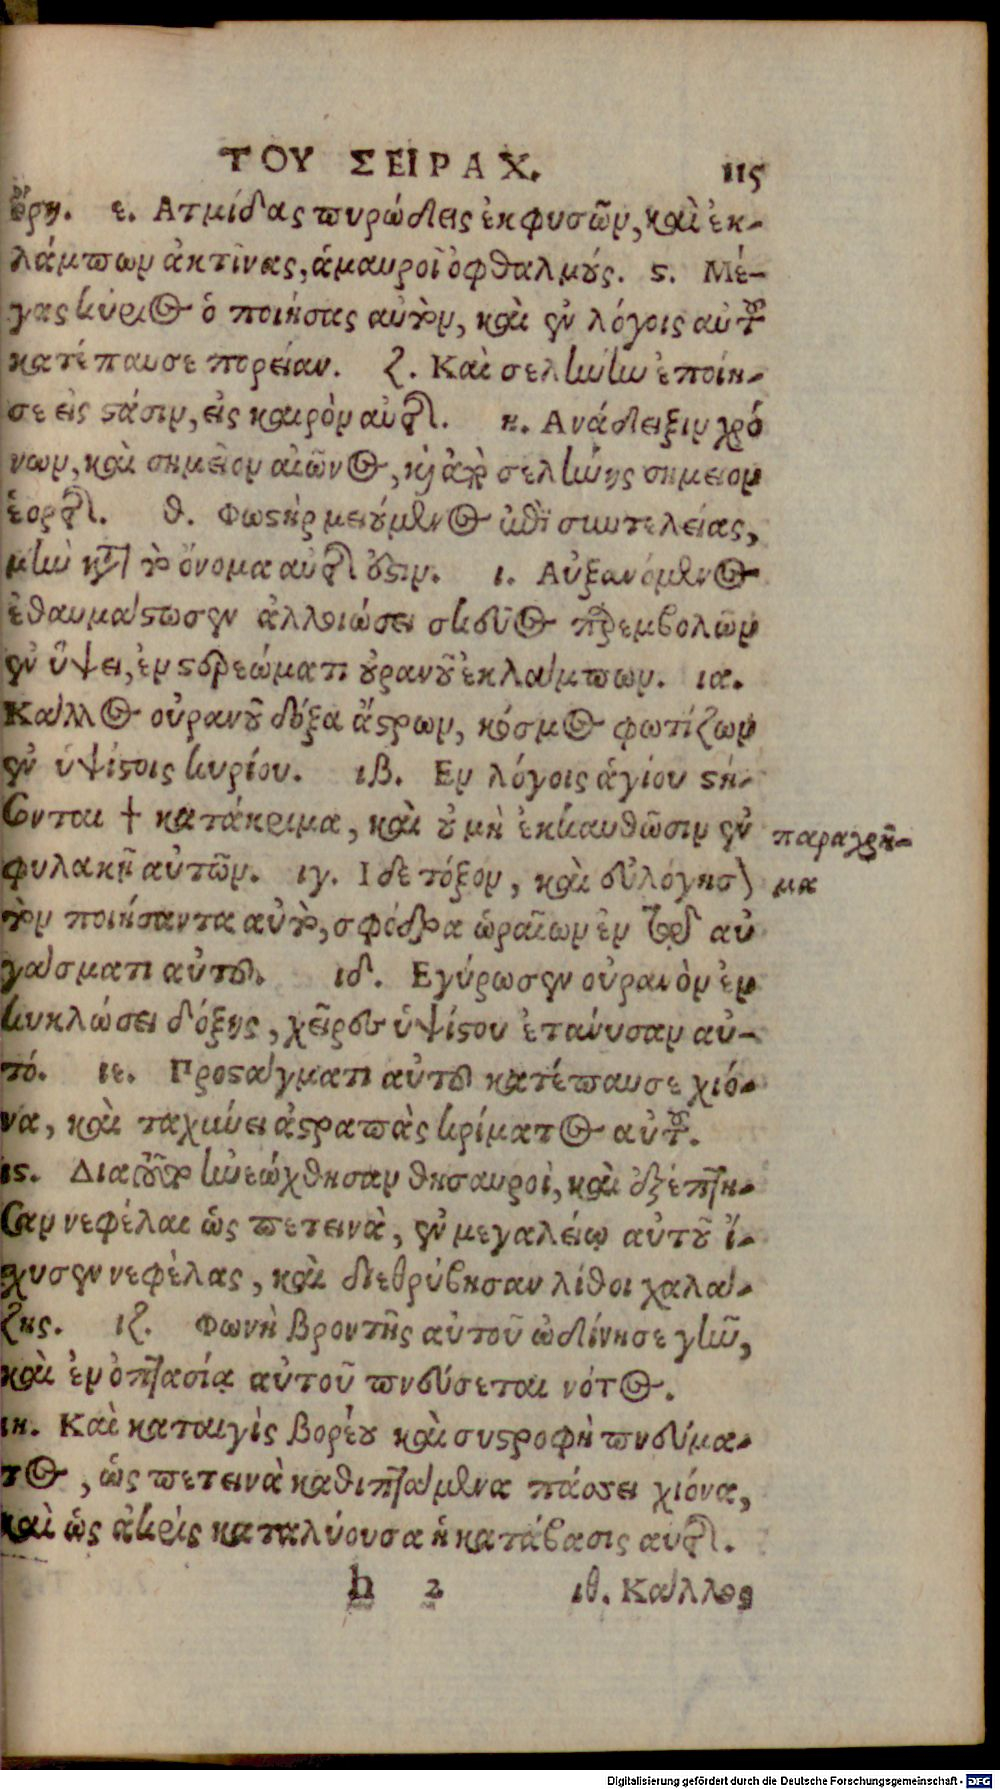 ΤΟΥ ΣΕΙΡΑΧ. 115
ὄρη. ε. Ατμίδας πυρώδεις ἐκφυσῶν, καὶ ἐκ-
λάμπων ἀκτῖνας, ἀμαυροῖ ὀφθαλμούς. ς. Μέ-
γας κύριος ὁ ποιήσας αὐτὸν, καὶ ἐν λόγοις αὐτοῦ
κατέπαυσε πορείαν. ζ. Καὶ σελήνην ἐποίη-
σε εἰς στάσιν, εἰς καιρὸν αὐτῆς. η. Ανάδειξιν χρό
νων, καὶ σημεῖον αἰῶνος, καὶ ἀπὸ σελήνης σημεῖον
ἑορτῆς. θ. Φωστὴρ μειούμενος ἐπὶ συντελείας,
μὴν κατὰ τὸ ὄνομα αὐτῆς ἐστιν. ι. Αὐξανόμενος
ἐθαυμάστωσεν ἀλλοιώσει σκεῦος παρεμβολῶν
ἐν ὕψει, ἐν στερεώματι οὐρανοῦ ἐκλάμπων. ια.
Κάλλος οὐρανοῦ δόξα ἄστρων, κόσμος φωτίζων
ἐν ὑψίστοις κυρίου. ιβ. Εν λόγοις ἁγίου στή-
σονται † κατάκριμα, καὶ οὐ μὴ ἐκκαυθῶσιν ἐν
παραχρῆ-
φυλακῇ αὐτῶν. ιγ. Ιδε τόξον, καὶ εὐλόγησον
μα
τὸν ποιήσαντα αὐτὸ, σφόδρα ὡραῖων ἐν τῷ αὐ
γάσματι αὐτοῦ. ιδ. Εγύρωσεν οὐρανὸν ἐν
κυκλώσει δόξης, χεῖρες ὑψίστου ἐτάνυσαν αὐ-
τό. ιε. Προστάγματι αὐτοῦ κατέπαυσε χιό-
να, καὶ ταχύνει ἀστραπὰς κρίματος αὐτοῦ.
ις. Διὰ τοῦτο ἠνεῴχθησαν θησαυροὶ, καὶ ἐξέπτη-
σαν νεφέλαι ὡς πετεινὰ, ἐν μεγαλείῳ αὐτοῦ ἴ-
χυσεν νεφέλας, καὶ διεθρύβησαν λίθοι χαλά-
ζης. ιζ. Φωνὴ βροντῆς αὐτοῦ ὠδίνησε γῆν,
καὶ ἐν ὀπτασίᾳ αὐτοῦ πνεύσεται νότος.
ιη. Καὶ καταιγὶς βορέου καὶ συστροφὴ πνεύμα-
τος, ὡς πετεινὰ καθιπτάμενα πάσσει χιόνα,
καὶ ὡς ἀκρὶς καταλύουσα ἡ κατάβασις αὐτῆς.
h 2 ιθ. Κάλλος
Digitalisierung gefördert durch die Deutsche Forschungsgemeinschaft - DFG